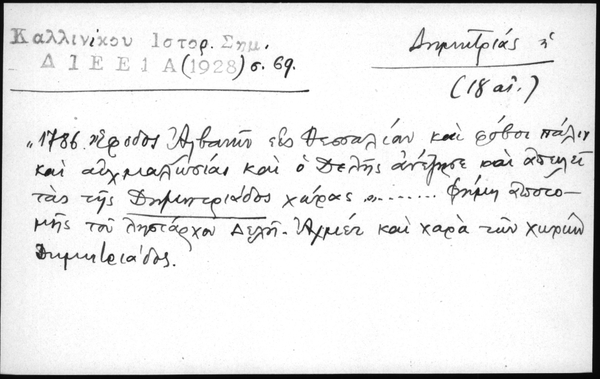 Καλλινίκου Ιστορ. Σημ.
Δ Ι Ε Ε 1 Α (1928) σ. 69.
Δημητριάς ἡ
(18 αἰ.)
"1786. Ἔφοδος Ἀλβανῶν εἰς Θεσσαλίαν καὶ φόβοι πάλιν
καὶ αἰχμαλωσίαι καὶ ὁ Δελῆς ἀνέζησε καὶ ἀπειλεῖ
τὰς τῆς Δημητριάδος χώρας ........ φήμη ἀποτο-
μῆς τοῦ ληστάρχου Δελῆ-Ἀχμέτ καὶ χαρὰ τῶν χωρῶν
Δημητριάδος.